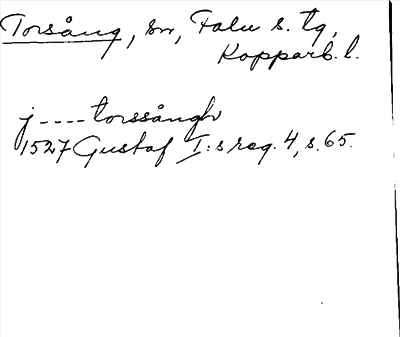 Torsång, sn, Falu s. tg,
Kopparb. l.
j----torssångh
1527 Gustaf I:s reg. 4, s. 65.